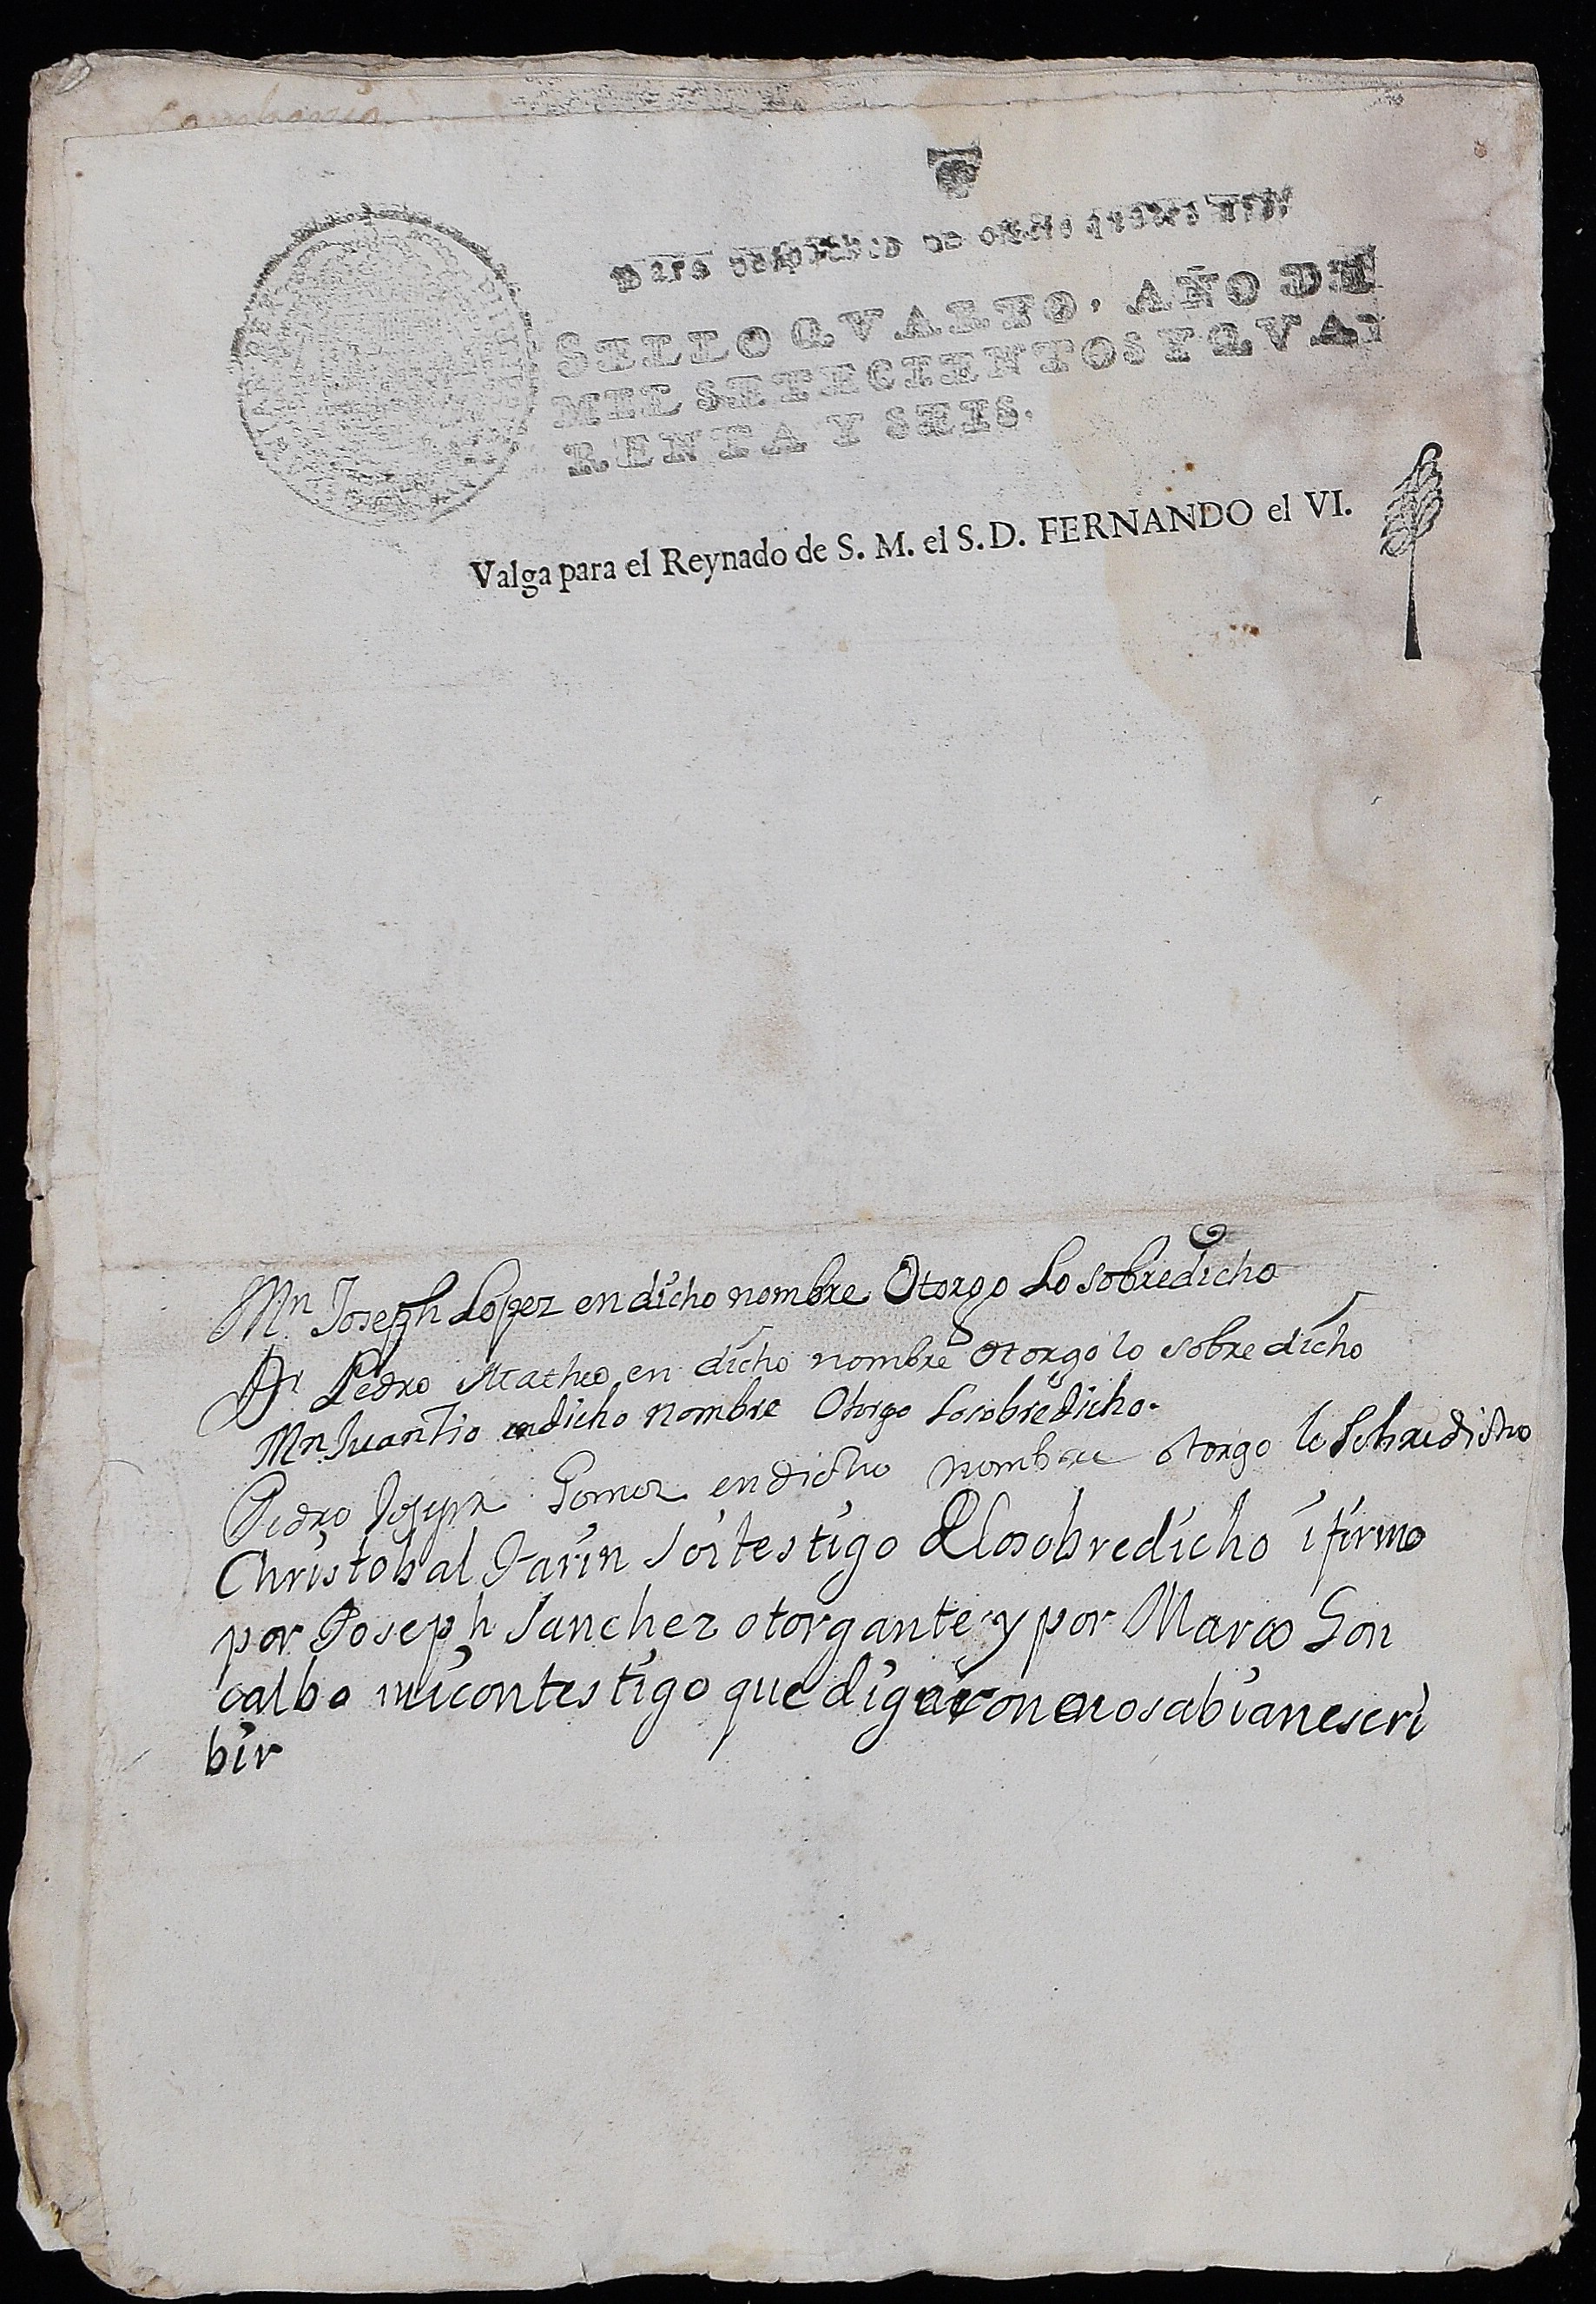 para despachos de oficio quatro mrs.
SELLO QVARTO, AÑO DE
MIL SETECIENTOS Y QVA
RENTA Y SEIS.
Valga para el Reynado de S. M. el S. D. FERNANDO el VI.
Mn Joseph Lopez en dicho nombre Otorgo Lo sobredicho
Dr Pedro Matheo en dicho nombre otorgo lo sobre dicho
Mn Juan Tio en dicho nombre Otorgo Lo sobredicho.
Pedro Joseph Gomez en dicho nombre otorgo lo Sobredicho
Christobal Marin soi testigo de lo sobredicho i firmo
por Joseph Sanchez otorgante y por Marco Gon
calbo mi contestigo que digeron no sabian escri
bir